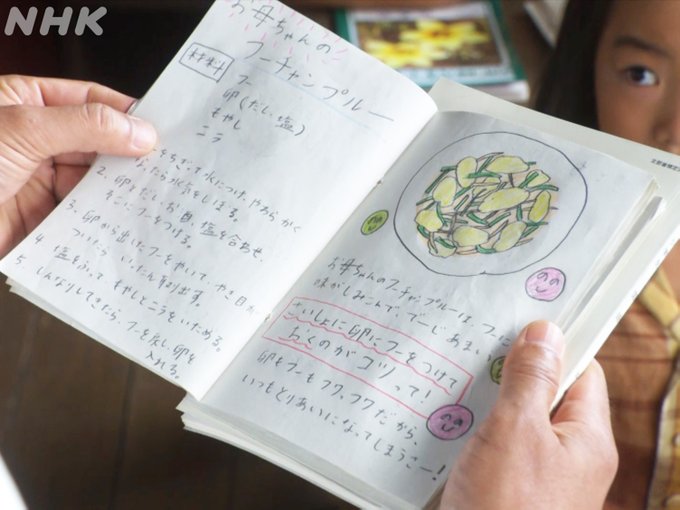 NHK
お母ちゃんの
フーチャンプルー
材料
フー
卵(だし、塩)
もやし
ニラ
をちぎって水につけ、やわらかく
なったら水気をしぼる。
2. 卵とだしお
塩を合わせ、
そこにフーをつける。
3. 卵から出したフーをやいて、やき目が
ついたらいったん取り出す。
4. 塩をふって、もやしとニラをいためる。
5. しんなりしてきたら、フーを戻し卵を
入れる。
お母ちゃんのフーチャンプルーは、フーに
味がしみこんで、でーじあまい
さいしょに卵にフーをつけて
おくのがコツって!
卵もフーもフワ、フワだから、
いっもとりあいになってしまうさー!